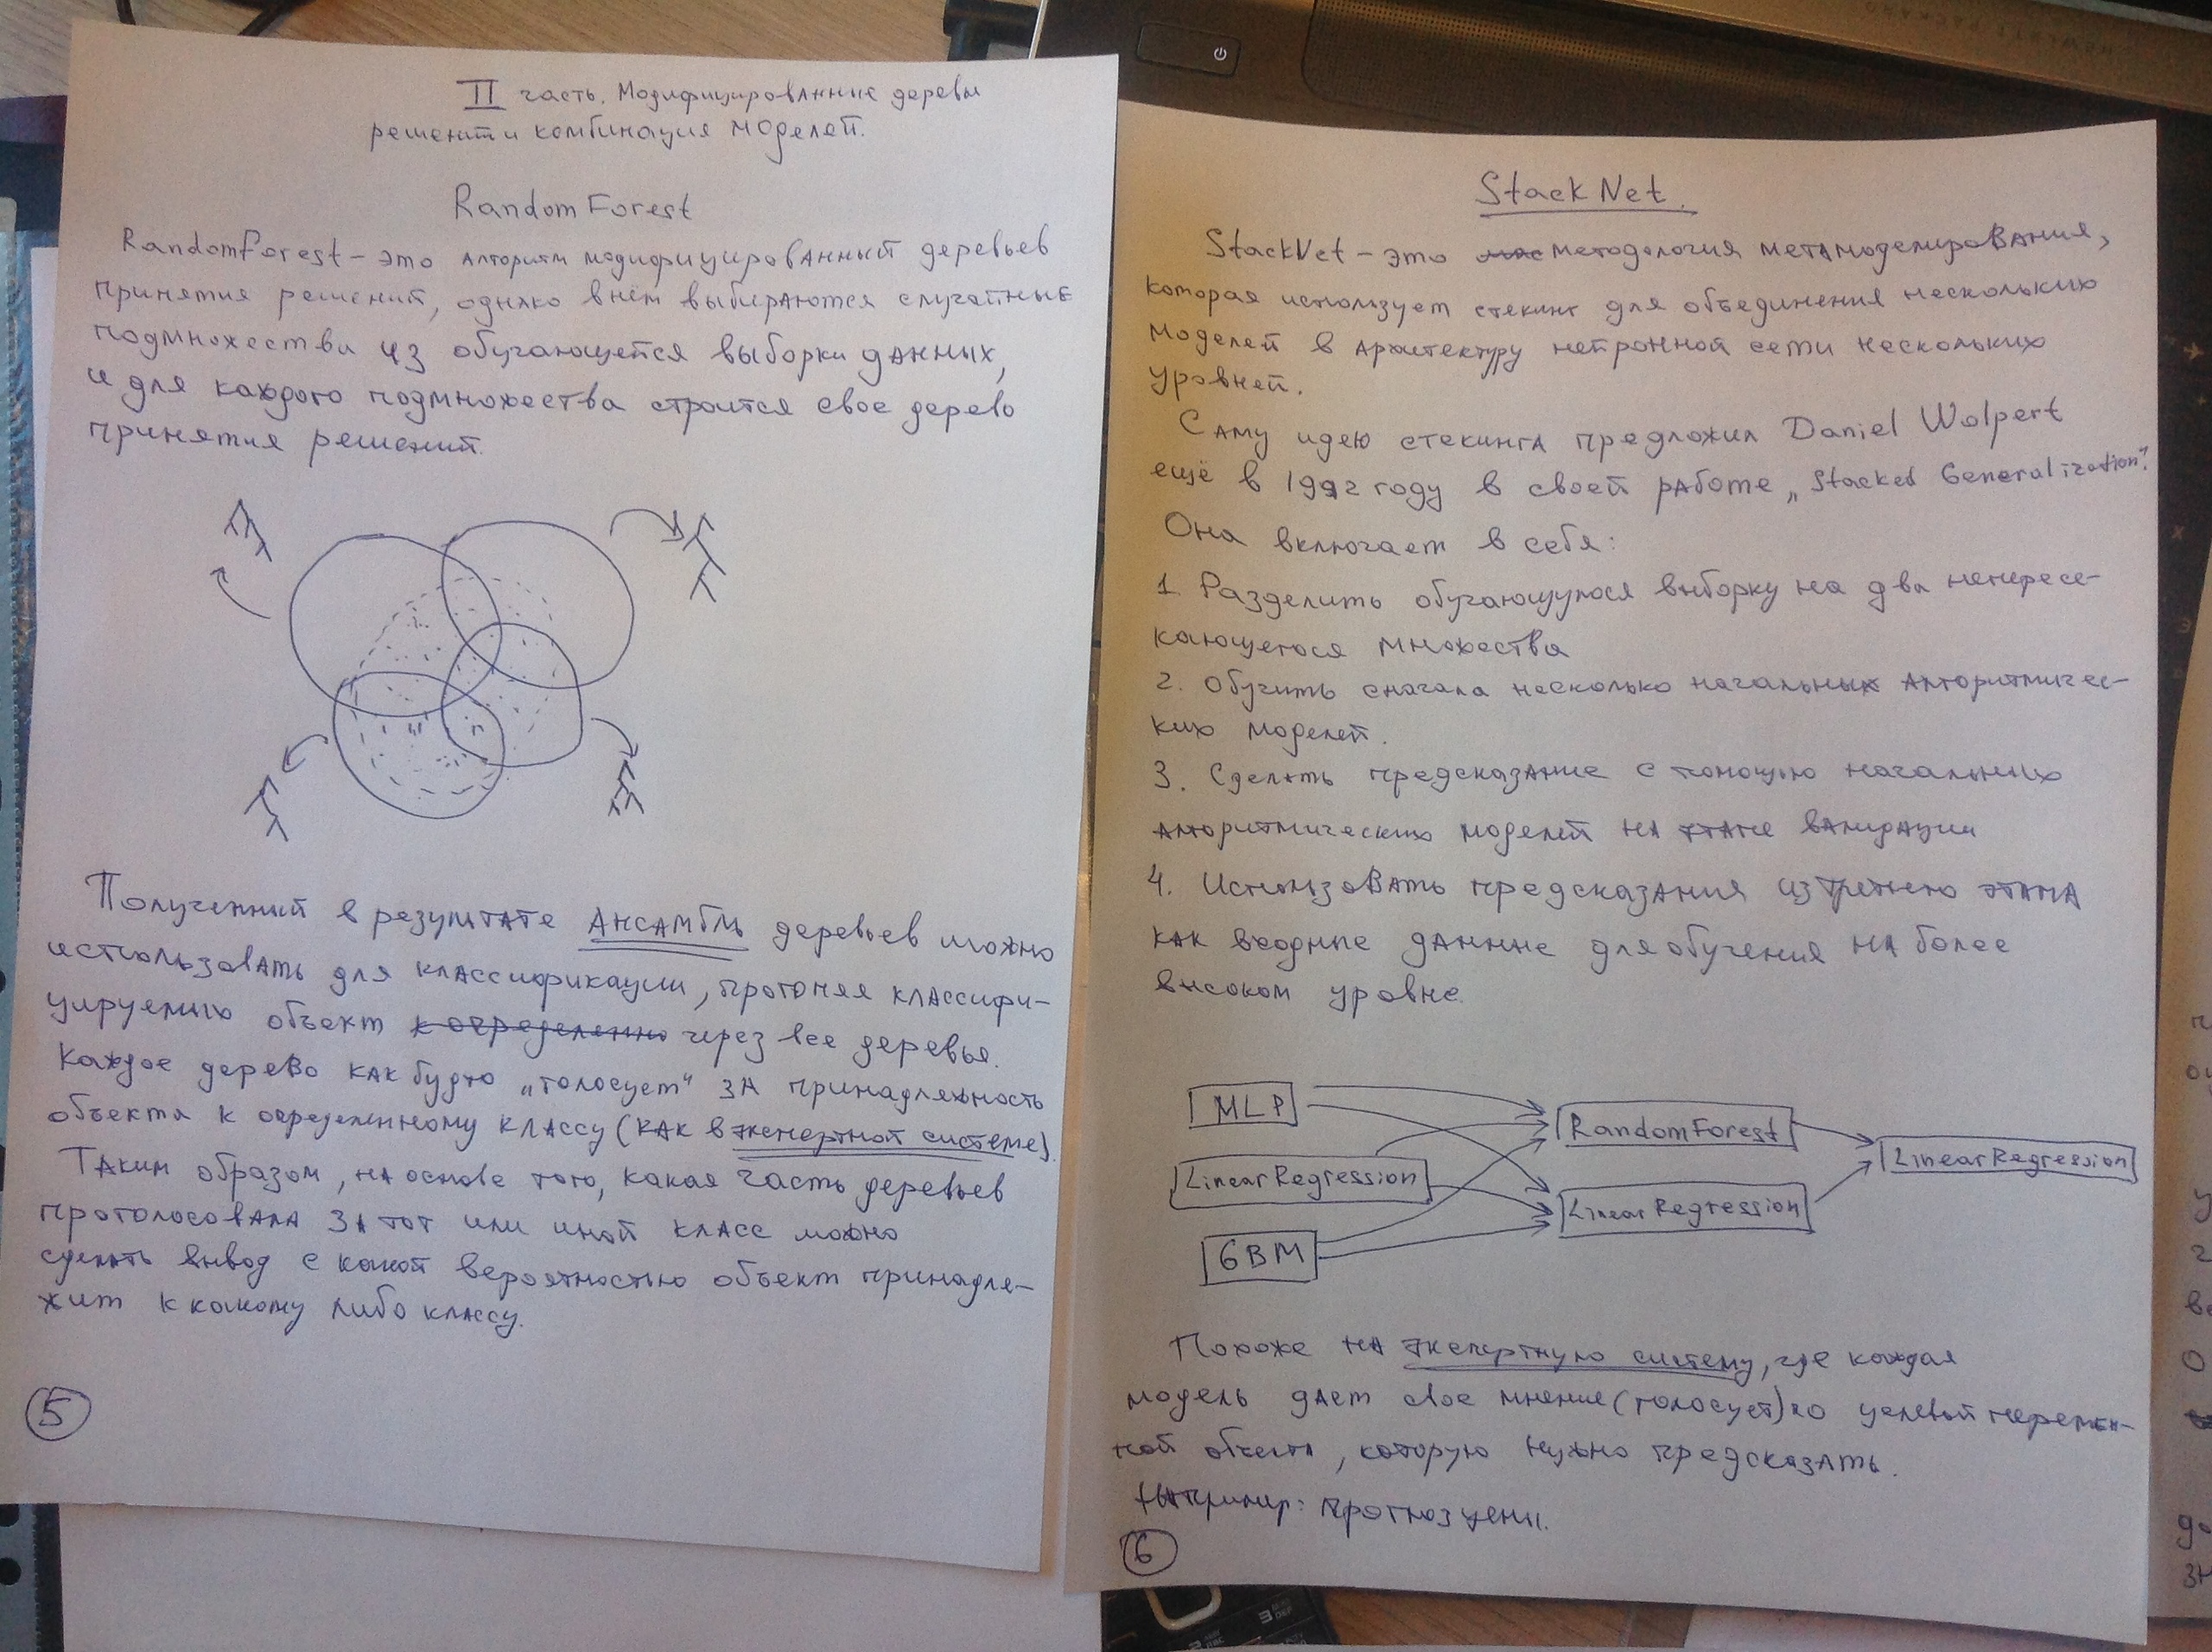 II часть. Модифицированные деревья
решений и комбинация моделей.
RandomForest
RandomForest – это алгоритм модифицированный деревьев
принятия решений, однако в нём выбираются случайные
подмножества из обучающейся выборки данных,
и для каждого подмножества строится свое дерево
принятия решений.
Полученный в результате Ансамбль деревьев можно
использовать для классификации, прогоняя классифи-
цируемый объект через все деревья.
Каждое дерево как будто „голосует“ за принадлежность
объекта к определенному классу (как в экспертной системе).
Таким образом, на основе того, какая часть деревьев
проголосовала за тот или иной класс можно
сделать вывод с какой вероятностью объект принадле-
жит к какому либо классу.
5
StackNet.
StackNet – это методология метамоделирования,
которая использует стекинг для объединения нескольких
моделей в архитектуру нейронной сети нескольких
уровней.
Саму идею стекинга предложил Daniel Wolpert
ещё в 1992 году в своей работе „Stacked Generalization“.
Она включает в себя:
1. Разделить обучающуюся выборку на два непересе-
кающегося множества
2. Обучить сначала несколько начальных алгоритмичес-
ких моделей.
3. Сделать предсказание с помощью начальных
алгоритмических моделей на этапе валидации
4. Использовать предсказания из третьего этапа
как входные данные для обучения на более
высоком уровне.
MLP
LinearRegression
GBM
RandomForest
LinearRegression
LinearRegression
Похоже на экспертную систему, где каждая
модель дает свое мнение (голосует) по целевой перемен-
ной объекта, которую нужно предсказать.
Например: прогноз цены.
6